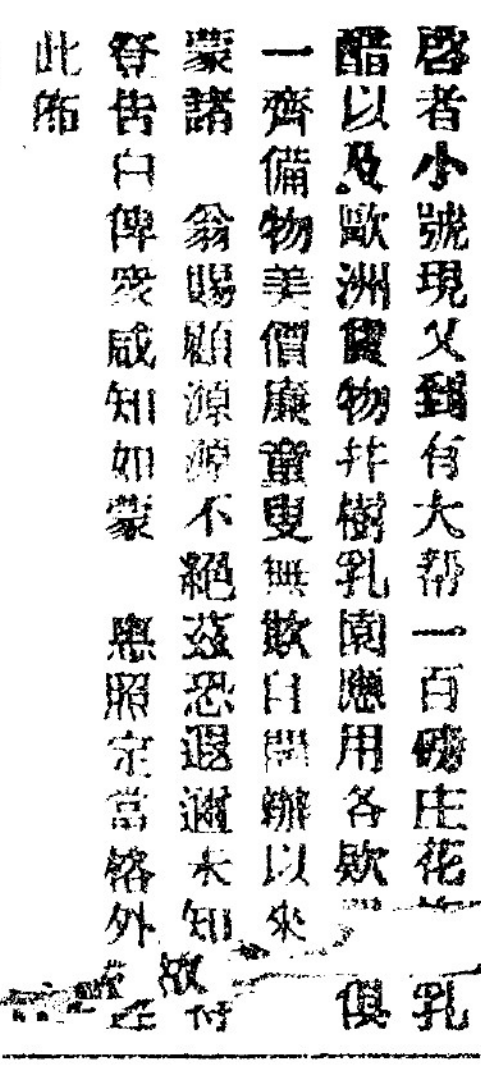 啓者小號現又到有大帮一百磅庄花乳
醋以及歐洲貨物并樹乳園應用各欵俱
一齊備物美價廉童叟無欺自開辦以來
蒙諸 翁賜顧源源不絕茲恐遐邇未知故付
登告白俾衆咸知如蒙 惠照定當格外
此佈